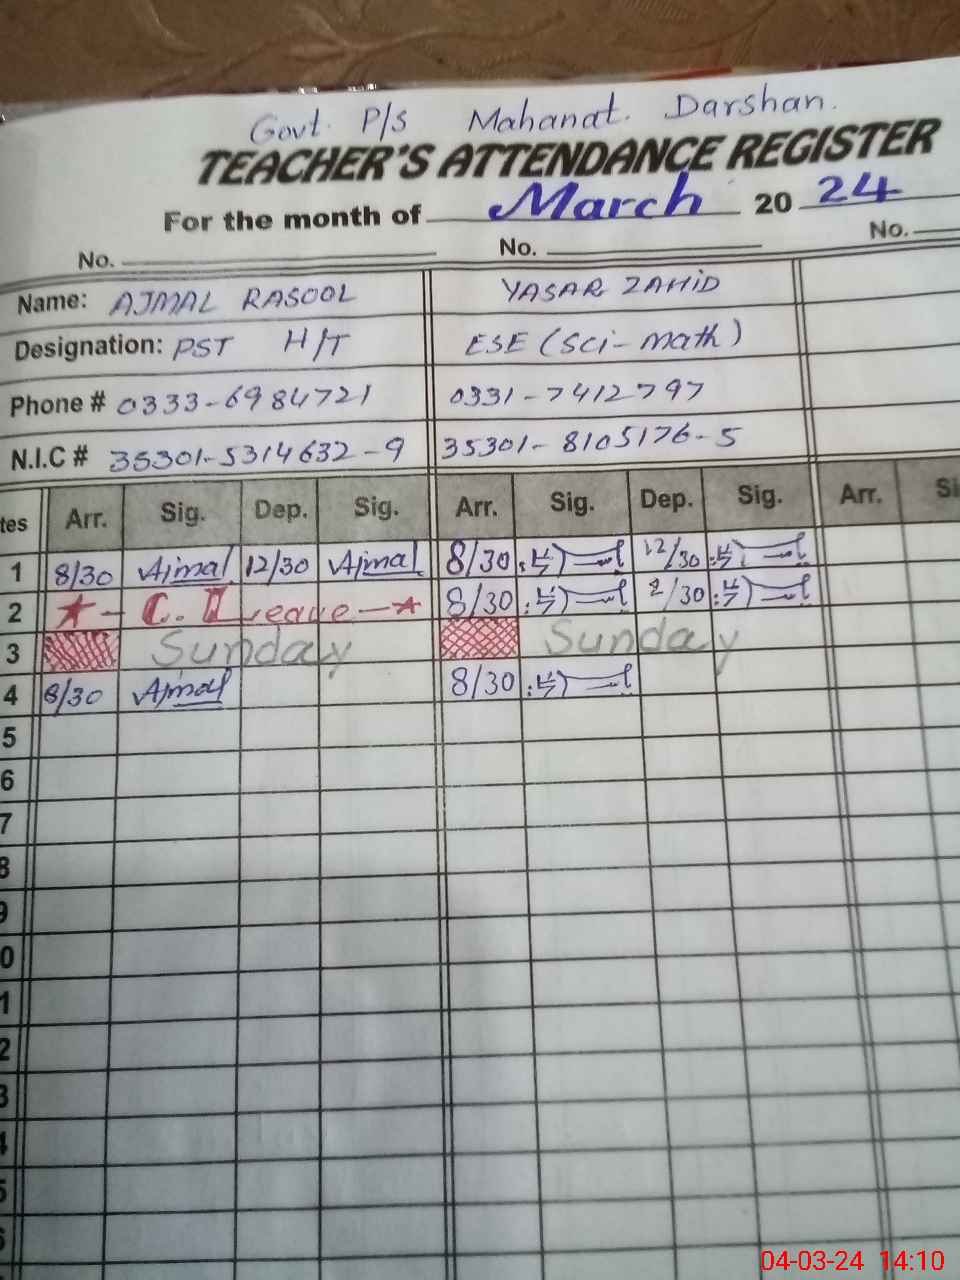 Govt. P/S Mahanat. Darshan.
TEACHER'S ATTENDANCE REGISTER
For the month of March 20 24
No. No. No.
Name: AJMAL RASOOL YASAR ZAHID
Designation: PST H/T ESE (Sci-math)
Phone # 0333-6984721 0331-7412797
N.I.C # 35301-5314632-9 35301-8105176-5
tes Arr. Sig. Dep. Sig. Arr. Sig. Dep. Sig. Arr. Si
1 8/30 Ajmal 12/30 Ajmal 8/30 12/30
2 C. Leave 8/30 2/30
3 Sunday Sunday
4 8/30 Ajmal 8/30
5
6
7
8
9
0
1
2
3
4
5
6
04-03-24 14:10